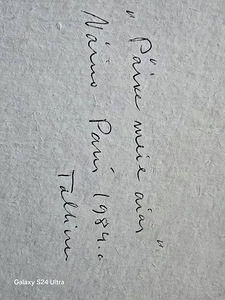 "Päike meie aias"
Näino Pari 1984.a
Tallinn
Galaxy S24 Ultra